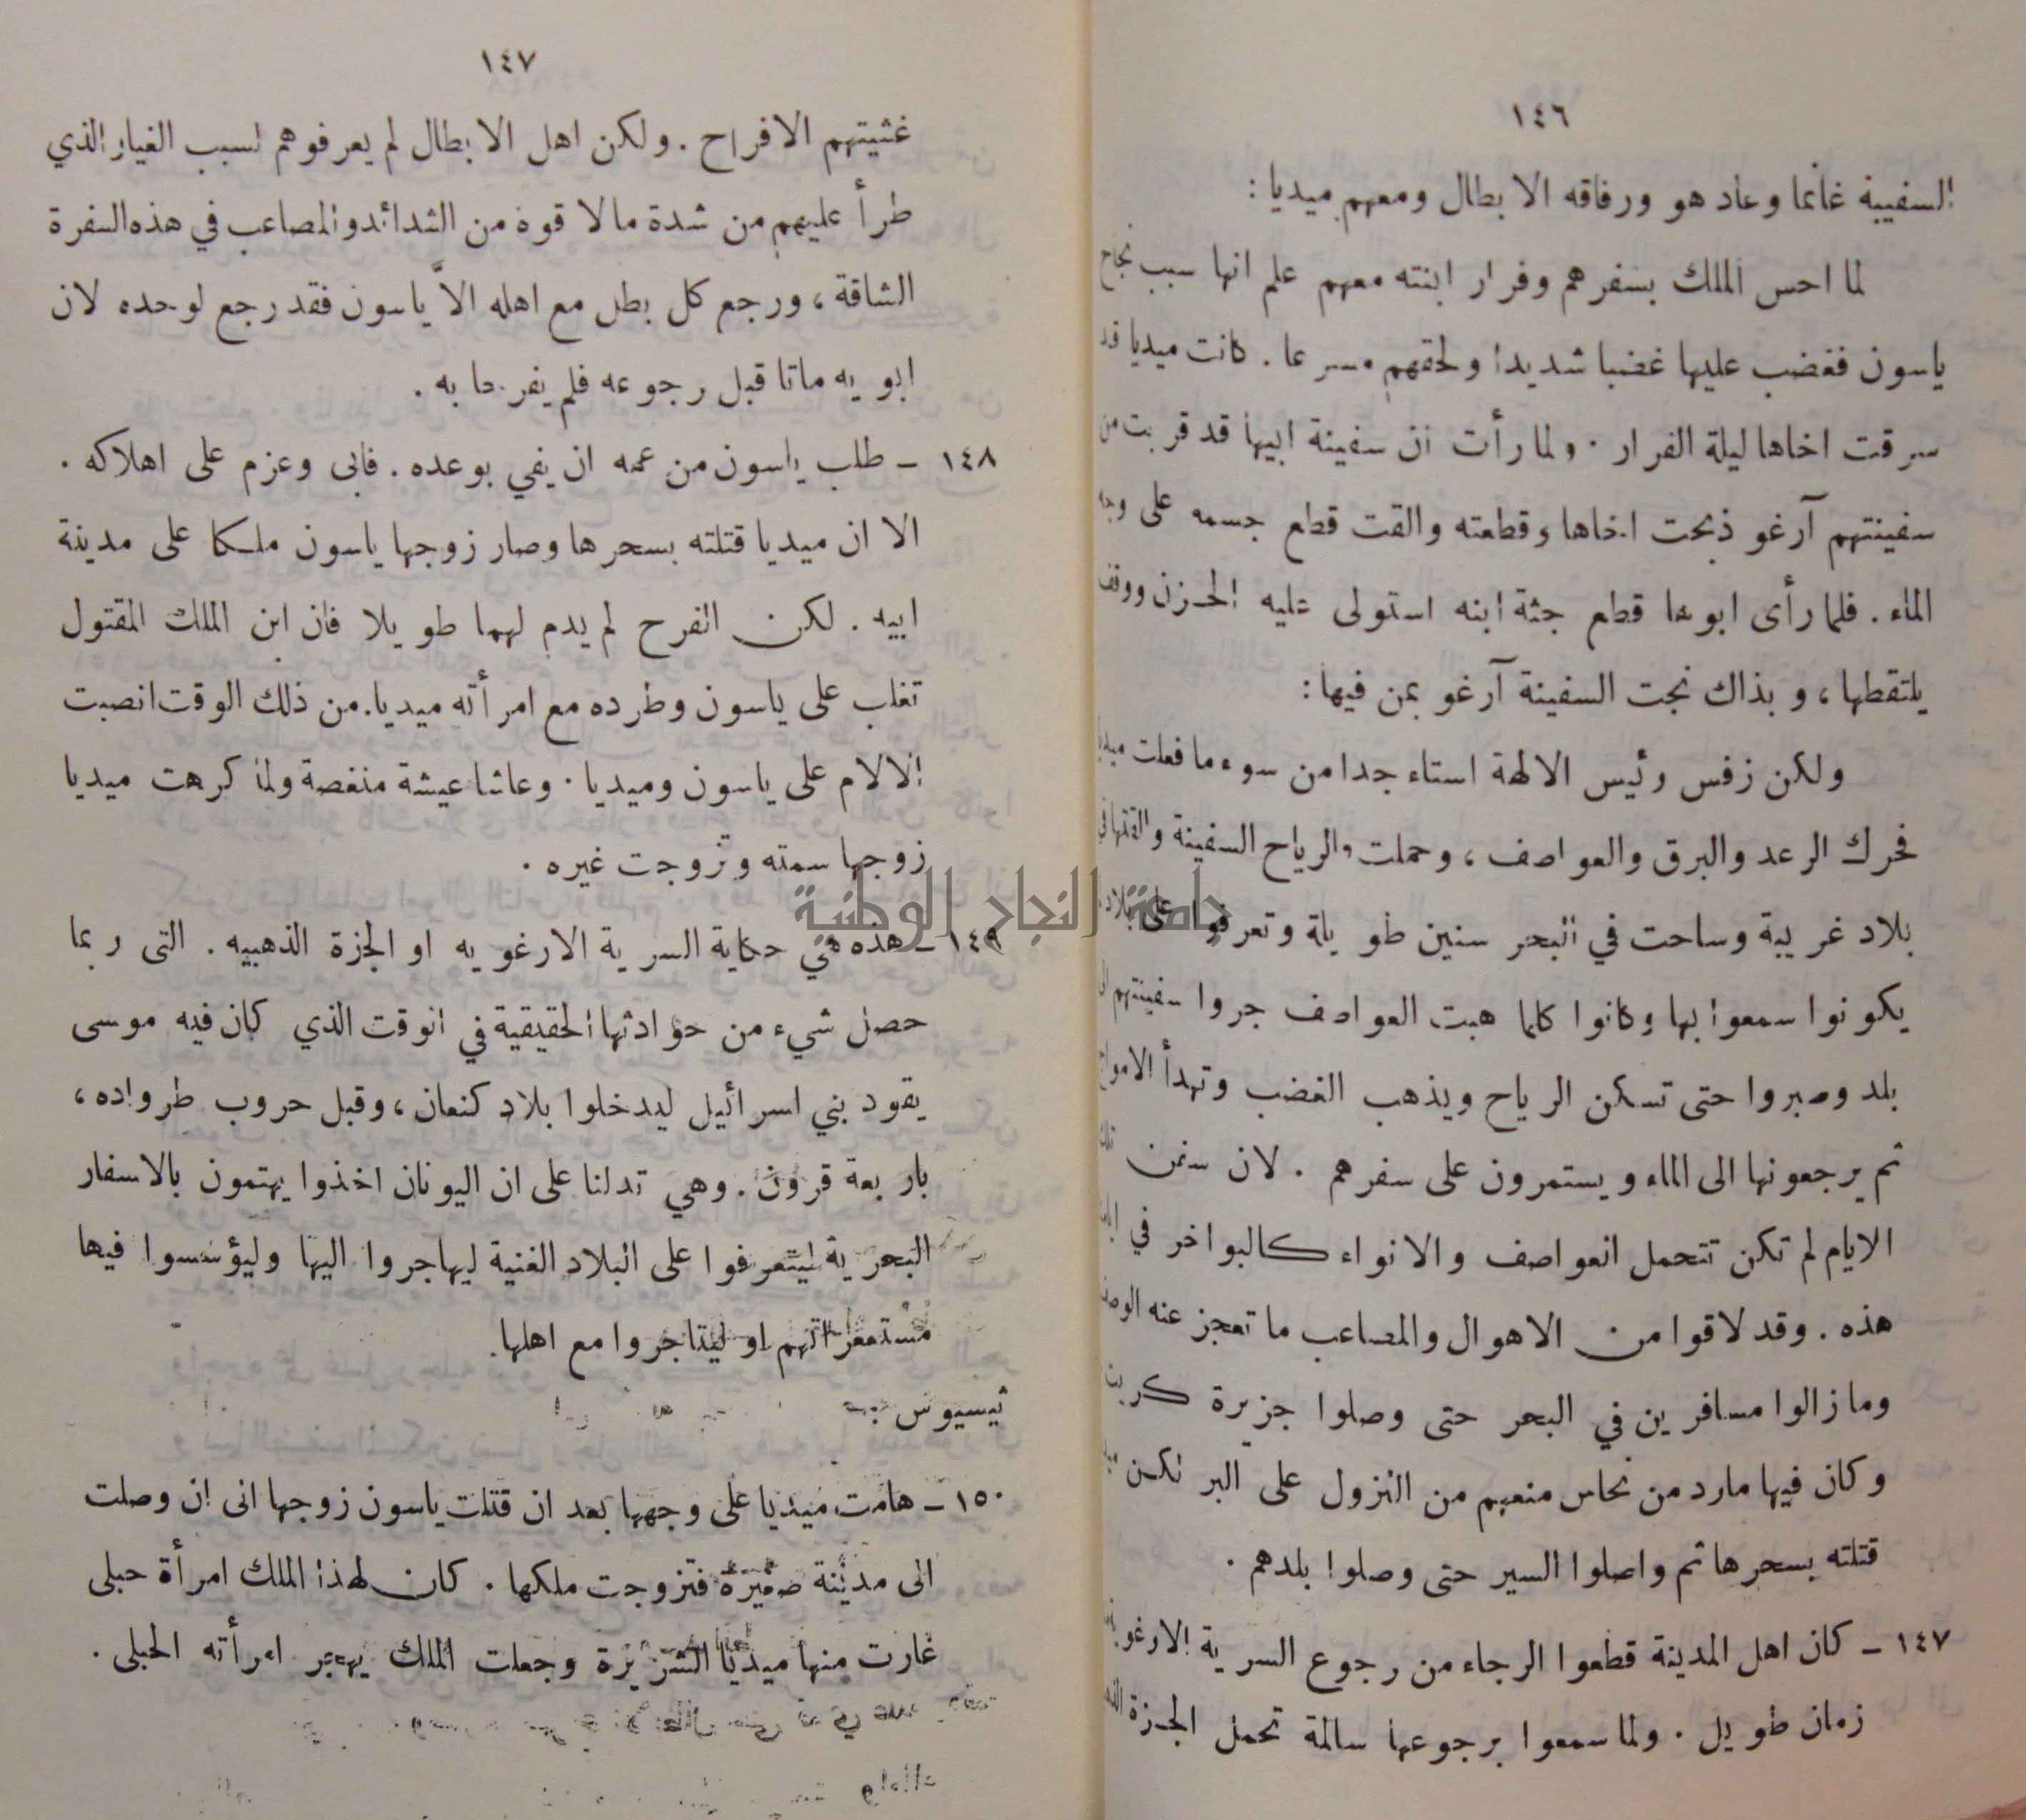 ١٤٦
السفينة غانما وعاد هو ورفاقه الابطال ومعهم ميديا :
لما احس الملك بسفرهم وفرار ابنته معهم علم انها سبب نجاح
ياسون فغضب عليها غضبا شديدا ولحقهم مسرعا . كانت ميديا قد
سرقت اخاها ليلة الفرار . ولما رأت ان سفينة ابيها قد قربت من
سفينتهم آرغو ذبحت اخاها وقطعته والقت قطع جسمه على وجه
الماء . فلما رأى ابوها قطع جثة ابنه استولى عليه الحزن ووقف
يلتقطها ، وبذاك نجت السفينة آرغو بمن فيها :
ولكن زفس رئيس الالهة استاء جدا من سوء ما فعلت ميديا
فحرك الرعد والبرق والعواصف ، وحملت والرياح السفينة والقتها في
بلاد غريبة وساحت في البحر سنين طويلة وتعرفوا على بلاد
يكونوا سمعوا بها وكانوا كلما هبت العواصف جروا سفينتهم الى
بلد وصبروا حتى تسكن الرياح ويذهب الغضب وتهدأ الامواج
ثم يرجعونها الى الماء ويستمرون على سفرهم . لان سفن تلك
الايام لم تكن تتحمل العواصف والانواء كالبواخر في
هذه . وقد لاقوا من الاهوال والمصاعب ما تعجز عنه الوصف
وما زالوا مسافرين في البحر حتى وصلوا جزيرة كريت
وكان فيها مارد من نحاس منعهم من النزول على البر لكن
قتلته بسحرها ثم واصلوا السير حتى وصلوا بلدهم .
١٤٧ - كان اهل المدينة قطعوا الرجاء من رجوع السرية الارغو
زمان طويل . ولما سمعوا برجوعها سالمة تحمل الجزة
١٤٧
غشيتهم الافراح . ولكن اهل الابطال لم يعرفوهم لسبب الغيار الذي
طرأ عليهم من شدة ما لاقوه من الشدائد والمصاعب في هذه السفرة
الشاقة ، ورجع كل بطل مع اهله الاّ ياسون فقد رجع لوحده لان
ابويه ماتا قبل رجوعه فلم يفرحا به .
١٤٨ - طلب ياسون من عمه ان يفي بوعده . فابى وعزم على اهلاكه .
الا ان ميديا قتلته بسحرها وصار زوجها ياسون ملكا على مدينة
ابيه . لكن الفرح لم يدم لهما طويلا فان ابن الملك المقتول
تغلب على ياسون وطرده مع امرأته ميديا . من ذلك الوقت انصبت
الالام على ياسون وميديا . وعاشا عيشة منغصة ولما كرهت ميديا
زوجها سمته وتزوجت غيره .
جامعة النجاح الوطنية
١٤٩ - هذه هي حكاية السرية الارغويه او الجزة الذهبيه . التى ربما
حصل شيء من حوادثها الحقيقية في الوقت الذي كان فيه موسى
يقود بني اسرائيل ليدخلوا بلاد كنعان ، وقبل حروب طرواده ،
باربعة قرون . وهي تدلنا على ان اليونان اخذوا يهتمون بالاسفار
البحرية ليتعرفوا على البلاد الغنية ليهاجروا اليها وليؤسسوا فيها
مستعمراتهم او ليتاجروا مع اهلها .
ثيسيوس :
١٥٠ - هامت ميديا على وجهها بعد ان قتلت ياسون زوجها الى ان وصلت
الى مدينة صغيرة فتزوجت ملكها . كان لهذا الملك امرأة حبلى
غارت منها ميديا الشريرة وجعلت الملك يهجر امرأته الحبلى .